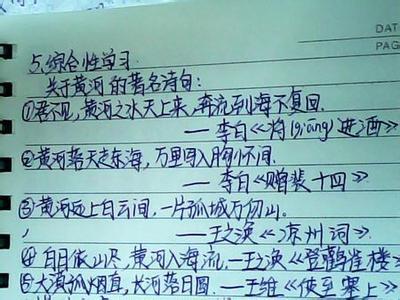 DAT
PAG
5.综合性学习
关于黄河的著名诗句:
①君不见,黄河之水天上来,奔流到海不复回.
——李白《将(qiāng)进酒》
②黄河落天走东海,万里写入胸怀间.
——李白《赠裴十四》
③黄河远上白云间,一片孤城万仞山。
——王之涣《凉州词》
④白日依山尽,黄河入海流.—王之涣《登鹳雀楼》
⑤大漠孤烟直,长河落日圆.—王维《使至塞上》